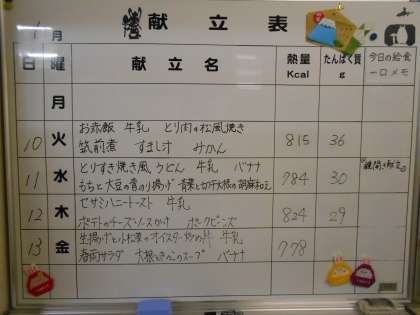 1月 献立表
日 曜 献立名 熱量 Kcal たんぱく質 g 今日の給食 一口メモ
月
お赤飯 牛乳 とり肉の松風焼き
10 火 筑前煮 すまし汁 みかん 815 36
とりすき焼き風うどん 牛乳 バナナ
11 水 もちと大豆の青のり揚げ 青菜と切干大根の胡麻和え 784 30
セサミハニートースト 牛乳
12 木 ポテトのチーズソースかけ ポークビーンズ 824 29
生揚げと小松菜のオイスター炒め丼 牛乳
13 金 春雨サラダ 大根ときのこのスープ バナナ 778